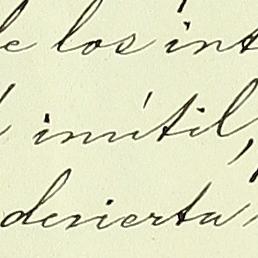 de los int
inútil,
desierta